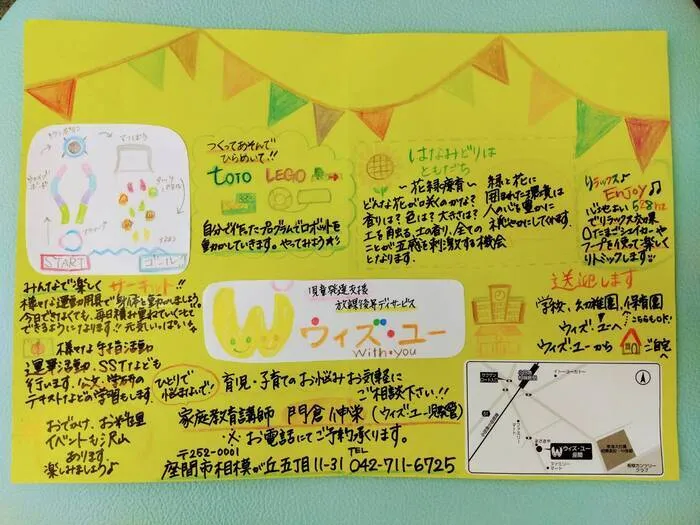 トランポリン
てつぼう
START
ゴール
つくってあそんで
ひらめいて!!
toio LEGO
自分で作ったプログラムでロボットを
動かしていきます。やってみよう
はなみどりは
ともだち
～花緑療育～
どんな花がさくのかな?
香りは?色は?大きさは?
土を触る、土の香り、全ての
ことが五感を刺激する機会
となります。
緑と花に
囲まれた環境は
人の心を豊かに
リラックス♪
Enjoy♫
心地よい528hz
でリラックス効果
フープを使って楽しく
リトミックします
みんなで楽しく サーキット!!
様々な運動用具で身体を動かしましょう。
今日できなくても、毎日積み重ねていくことで
できるようになります!! 元気いっぱい
様々な手指活動
運筆活動、SSTなども
行います。公文、学研の
テキストなどの学習もします。
おでかけ、お料理
イベントも沢山
あります。
楽しみましょう♪
児童発達支援
放課後等デイサービス
ウィズ・ユー
With・you
送迎します
学校、幼稚園、保育園
こちらもOK!
ウィズ・ユーへ
ウィズ・ユーから ご自宅へ
ひとりで
悩まないで!
育児・子育てのお悩みお気軽に
ご相談下さい!!
家庭教育講師 門倉伸栄(ウィズ・ユー運営)
※お電話にてご予約承ります。
〒252-0001 TEL
座間市相模が丘五丁目11-31 042-711-6725
イトーヨーカドー
ファミリーマート
ウィズ・ユー
座間
ファミリーマート
相模カンツリークラブ